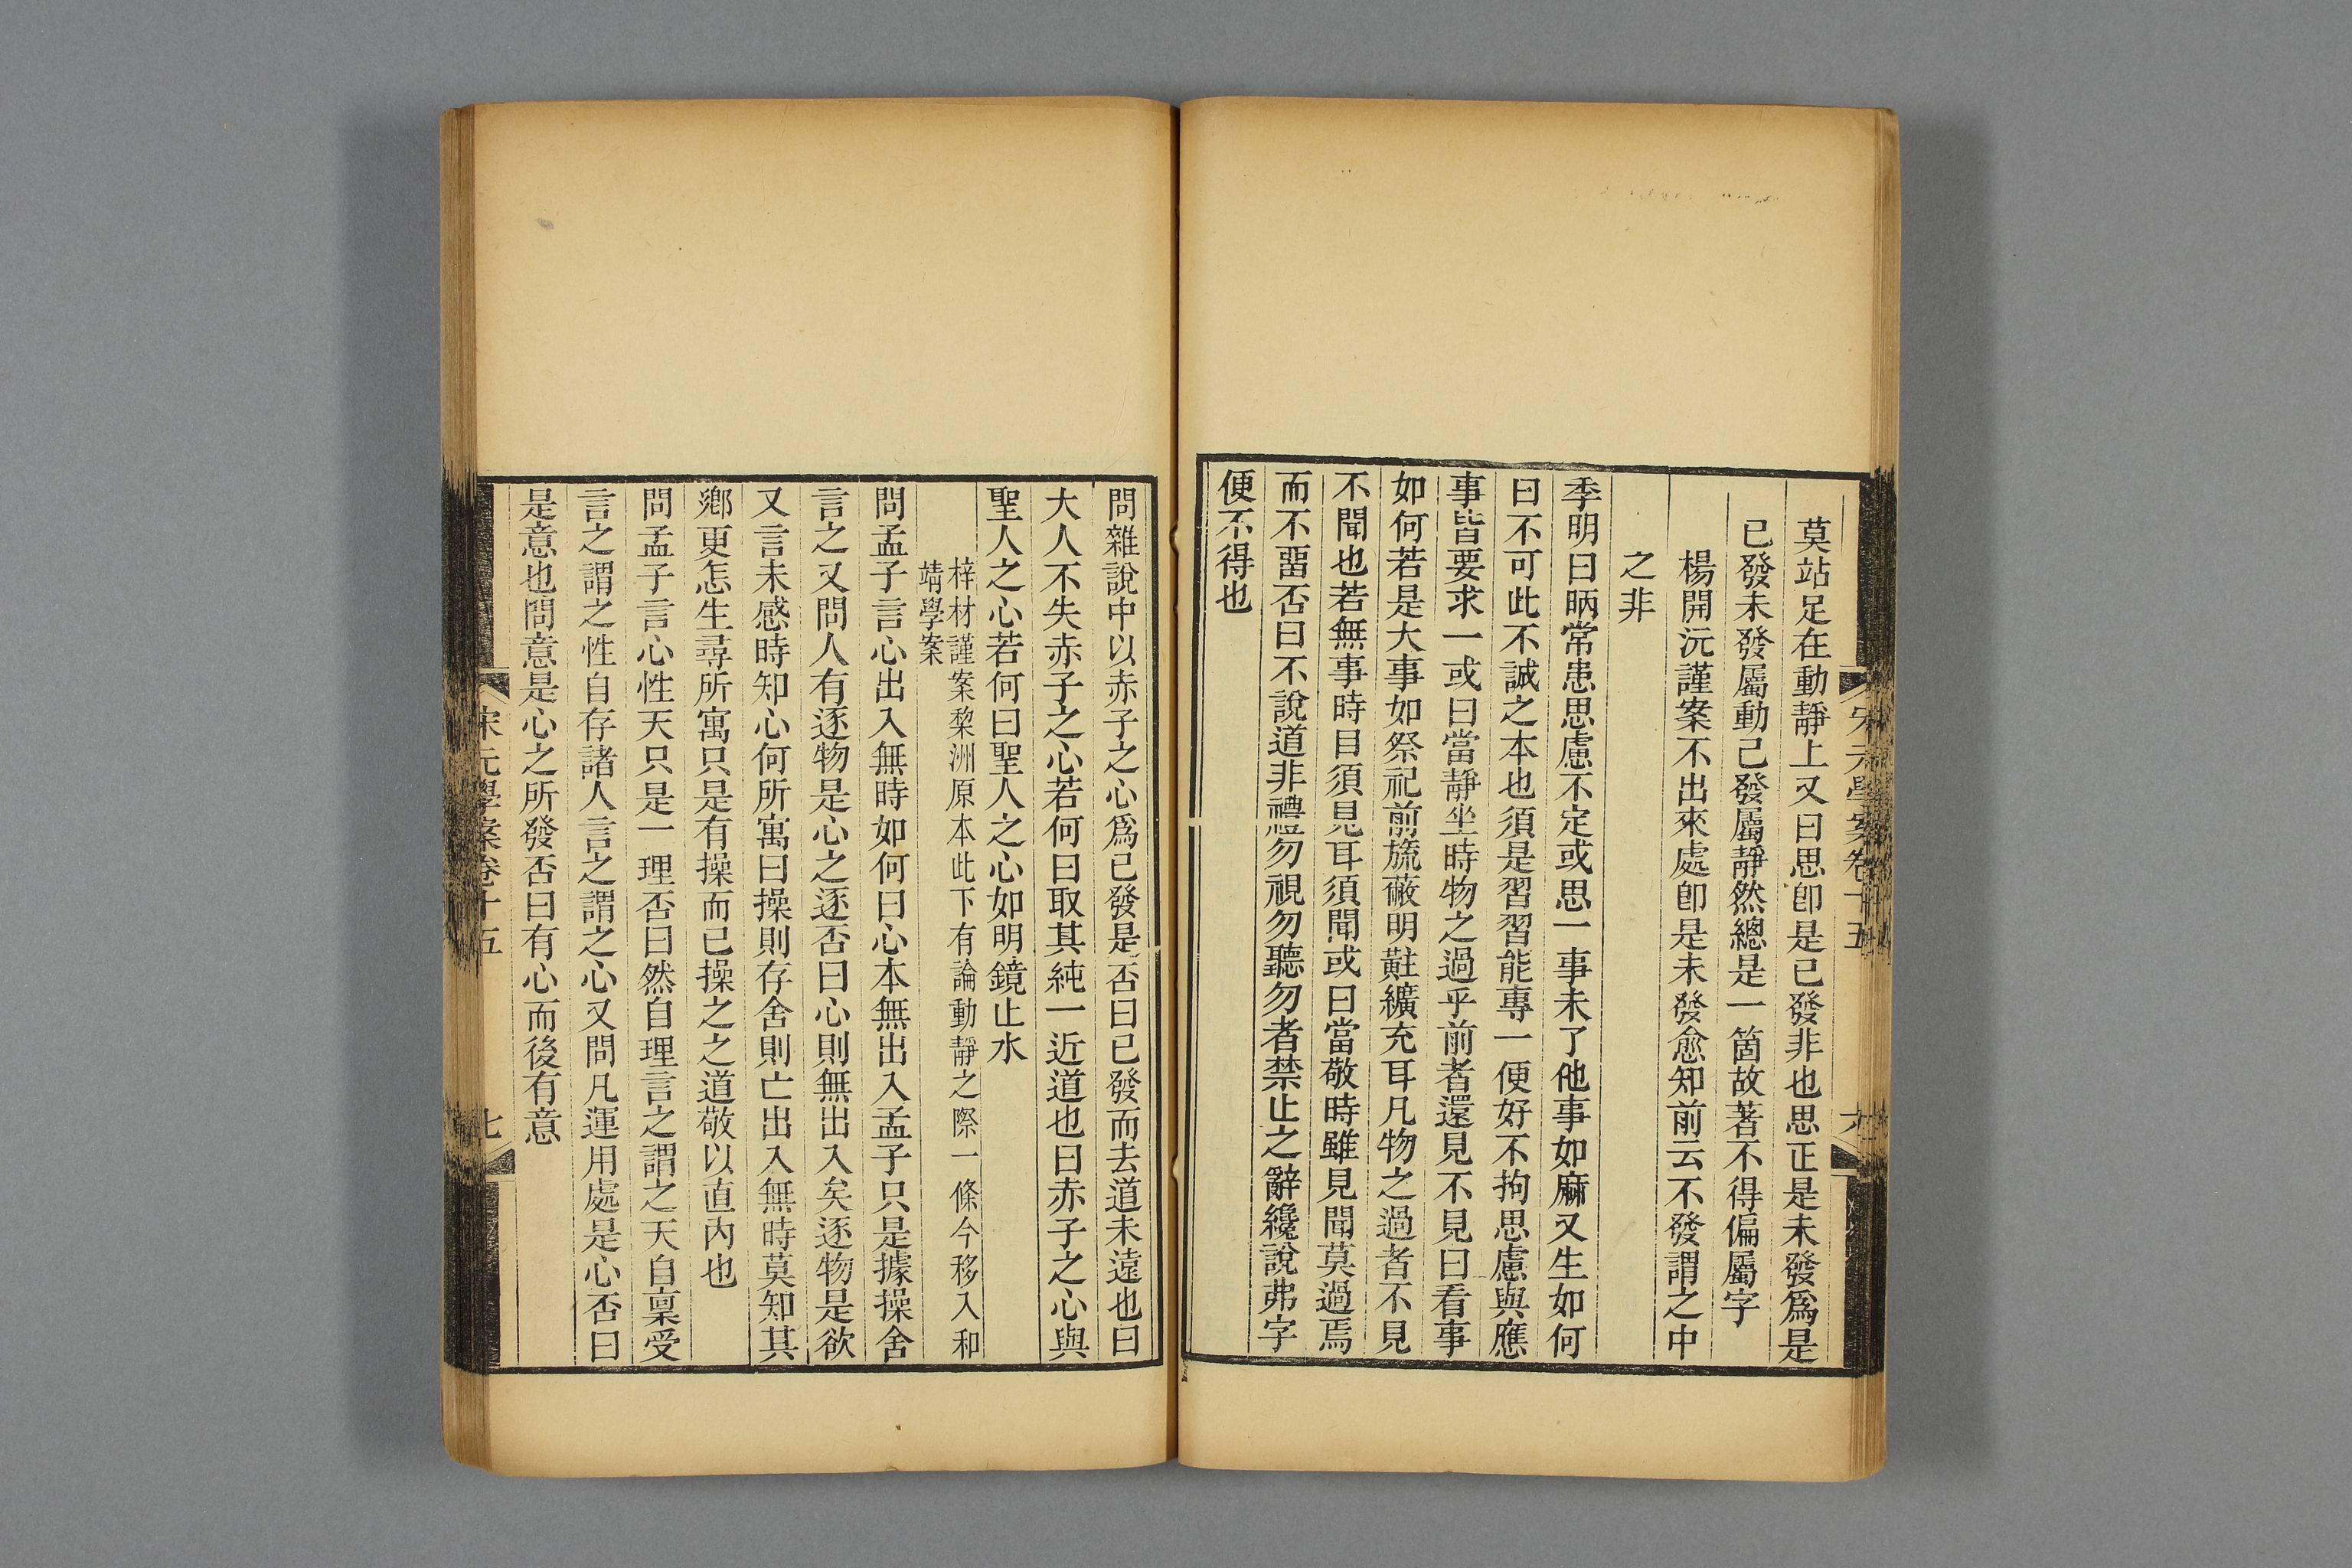 莫站足在動靜上又曰思卽是已發非也思正是未發爲是
已發未發屬動已發屬靜然總是一箇故著不得偏屬字
楊開沅謹案不出來處卽是未發愈知前云不發謂之中
之非
季明曰昞常患思慮不定或思一事未了他事如麻又生如何
曰不可此不誠之本也須是習習能專一便好不拘思慮與應
事皆要求一或曰當靜坐時物之過乎前者還見不見曰看事
如何若是大事如祭祀前旒蔽明黈纊充耳凡物之過者不見
不聞也若無事時目須見耳須聞或曰當敬時雖見聞莫過焉
而不畱否曰不說道非禮勿視勿聽勿者禁止之辭纔說弗字
便不得也
宋元學案卷十五
六
問雜說中以赤子之心爲已發是否曰已發而去道未遠也曰
大人不失赤子之心若何曰取其純一近道也曰赤子之心與
聖人之心若何曰聖人之心如明鏡止水
梓材謹案棃洲原本此下有論動靜之際一條今移入和
靖學案
問孟子言心出入無時如何曰心本無出入孟子只是據操舍
言之又問人有逐物是心之逐否曰心則無出入矣逐物是欲
又言未感時知心何所寓曰操則存舍則亡出入無時莫知其
鄕更怎生尋所寓只是有操而已操之之道敬以直內也
問孟子言心性天只是一理否曰然自理言之謂之天自稟受
言之謂之性自存諸人言之謂之心又問凡運用處是心否曰
是意也問意是心之所發否曰有心而後有意
宋元學案卷十五
七